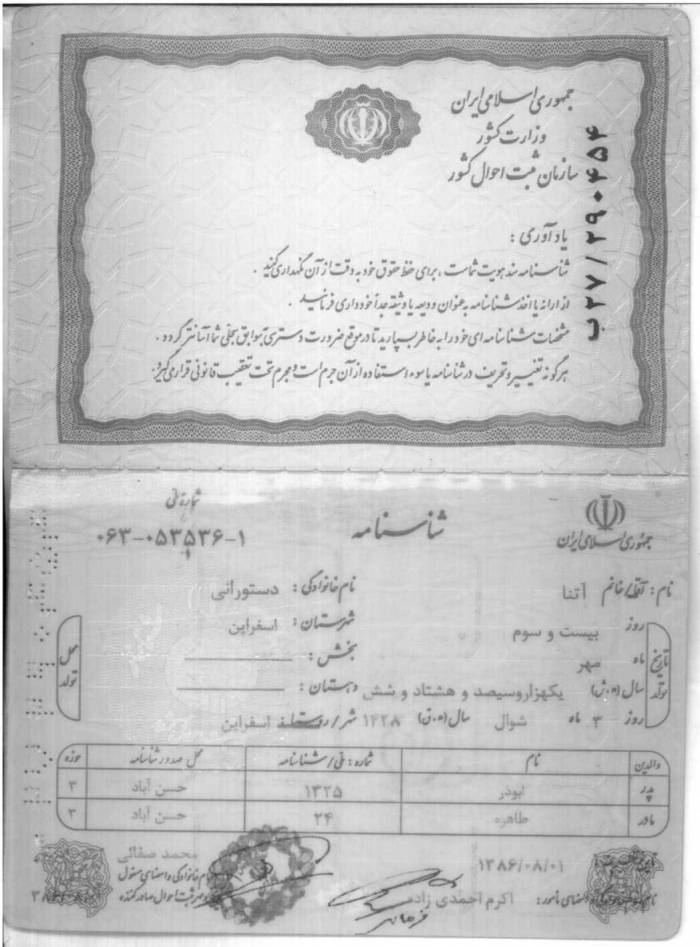 جمهوری اسلامی ایران
وزارت کشور
سازمان ثبت احوال کشور
ب۲۷/۲۹۰۴۵۴
یادآوری :
شناسنامه سند هویت شماست ، برای حفظ حقوق خود به دقت از آن نگهداری کنید .
از ارائه یا اخذ شناسنامه به عنوان ودیعه یا وثیقه جداً خودداری فرمائید .
مشخصات شناسنامه ای خود را به خاطر بسپارید تا در موقع ضرورت دسترسی بسوابق سجلی شما آسانتر گردد .
هرگونه تغییر و تحریف در شناسنامه یا سوء استفاده از آن جرم است و مجرم تحت تعقیب قانونی قرار می گیرد.
جمهوری اسلامی ایران
شناسنامه
شماره ملی
۰۶۳-۰۵۳۵۳۶-۱
نام : آقا/خانم آتنا نام خانوادگی : دستورانی
تاریخ تولد
روز بیست و سوم شهرستان : اسفراین
ماه مهر بخش :
سال (ه.ش) یکهزاروسیصد و هشتاد و شش دهستان :
روز ۳ ماه شوال سال (ه.ق) ۱۴۲۸ شهر/روستا اسفراین
محل تولد
والدین نام شماره : ملی/شناسنامه محل صدور شناسنامه حوزه
پدر ابوذر ۱۳۲۵ حسن آباد ۳
مادر طاهره ۲۴ حسن آباد ۳
۱۳۸۶/۰۸/۰۱
محمد صفائی
نام خانوادگی و امضای مسئول
و مهر ثبت احوال صادرکننده
امضای مأمور : اکرم احمدی زاده